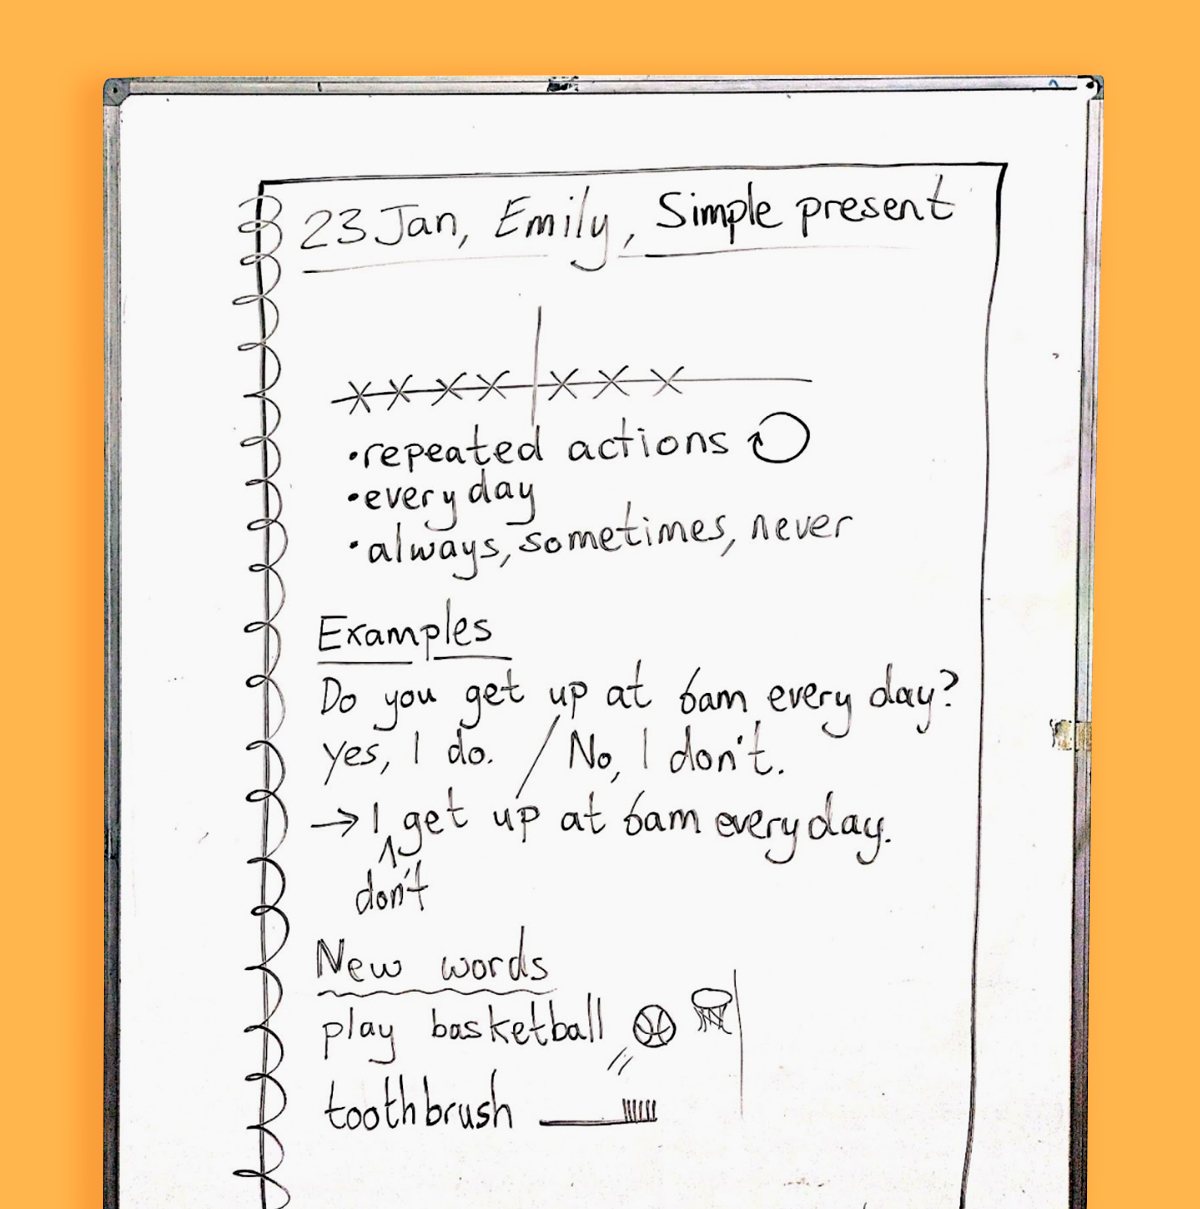 23 Jan, Emily, Simple present
•repeated actions
•every day
•always, sometimes, never
Examples
Do you get up at 6am every day?
yes, I do. / No, I don't.
→ I get up at 6am every day.
don't
New words
play basketball
toothbrush